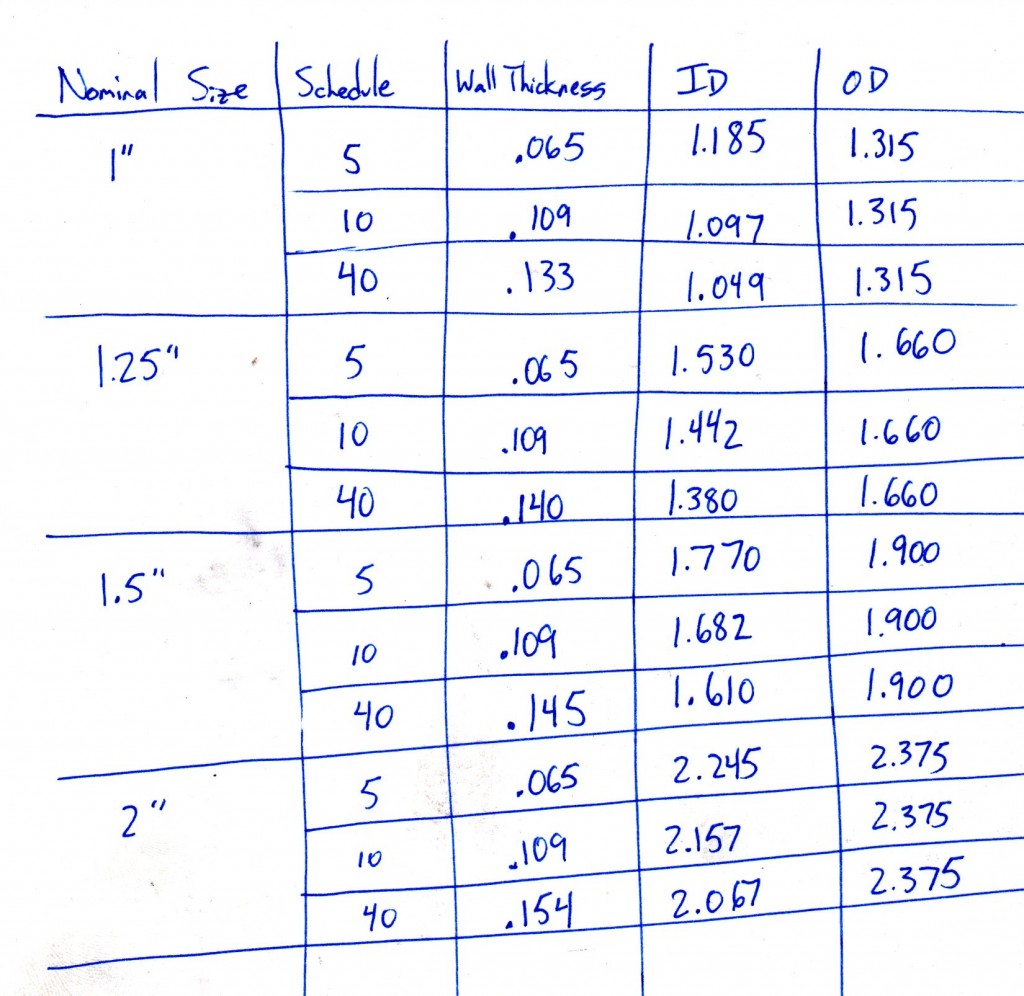 Nominal Size Schedule Wall Thickness ID OD
1" 5 .065 1.185 1.315
10 .109 1.097 1.315
40 .133 1.049 1.315
1.25" 5 .065 1.530 1.660
10 .109 1.442 1.660
40 .140 1.380 1.660
1.5" 5 .065 1.770 1.900
10 .109 1.682 1.900
40 .145 1.610 1.900
2" 5 .065 2.245 2.375
10 .109 2.157 2.375
40 .154 2.067 2.375